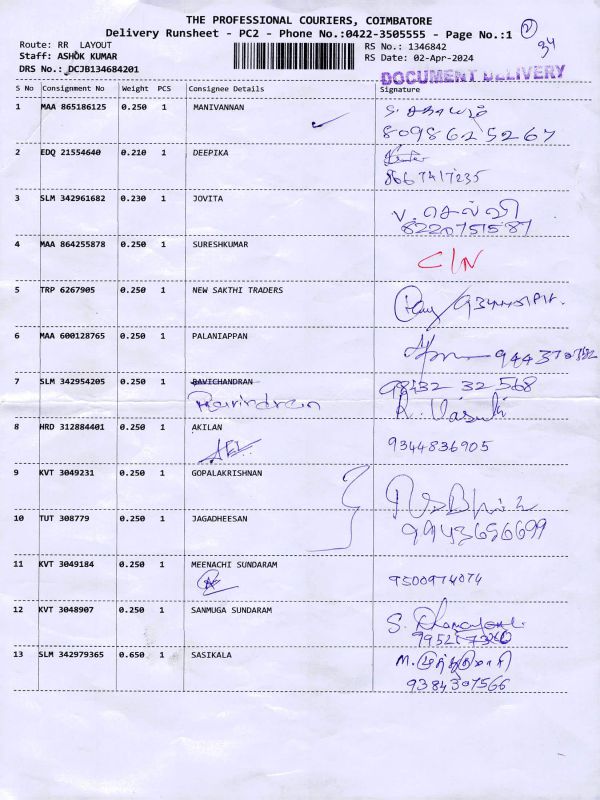 THE PROFESSIONAL COURIERS, COIMBATORE
Delivery Runsheet - PC2 - Phone No.:0422-3505555 - Page No.:1
34
Route: RR LAYOUT
RS No.: 1346842
Staff: ASHOK KUMAR
RS Date: 02-Apr-2024
DRS No.: DCJB134684201
DOCUMENT DELIVERY
S No Consignment No Weight PCS Consignee Details Signature
1 MAA 865186125 0.250 1 MANIVANNAN
8098625267
2 EDQ 21554640 0.210 1 DEEPIKA
8667417235
3 SLM 342961682 0.230 1 JOVITA V. செல்வி
8220751587
4 MAA 864255878 0.250 1 SURESHKUMAR
C/N
5 TRP 6267905 0.250 1 NEW SAKTHI TRADERS
6 MAA 600128765 0.250 1 PALANIAPPAN
7 SLM 342954205 0.250 1 RAVICHANDRAN 98432 32 568
Ravindran R. Vasuki
8 HRD 312884401 0.250 1 AKILAN
9344836905
9 KVT 3049231 0.250 1 GOPALAKRISHNAN
10 TUT 308779 0.250 1 JAGADHEESAN
9943656699
11 KVT 3049184 0.250 1 MEENACHI SUNDARAM
9500974074
12 KVT 3048907 0.250 1 SANMUGA SUNDARAM
13 SLM 342979365 0.650 1 SASIKALA
9384307566